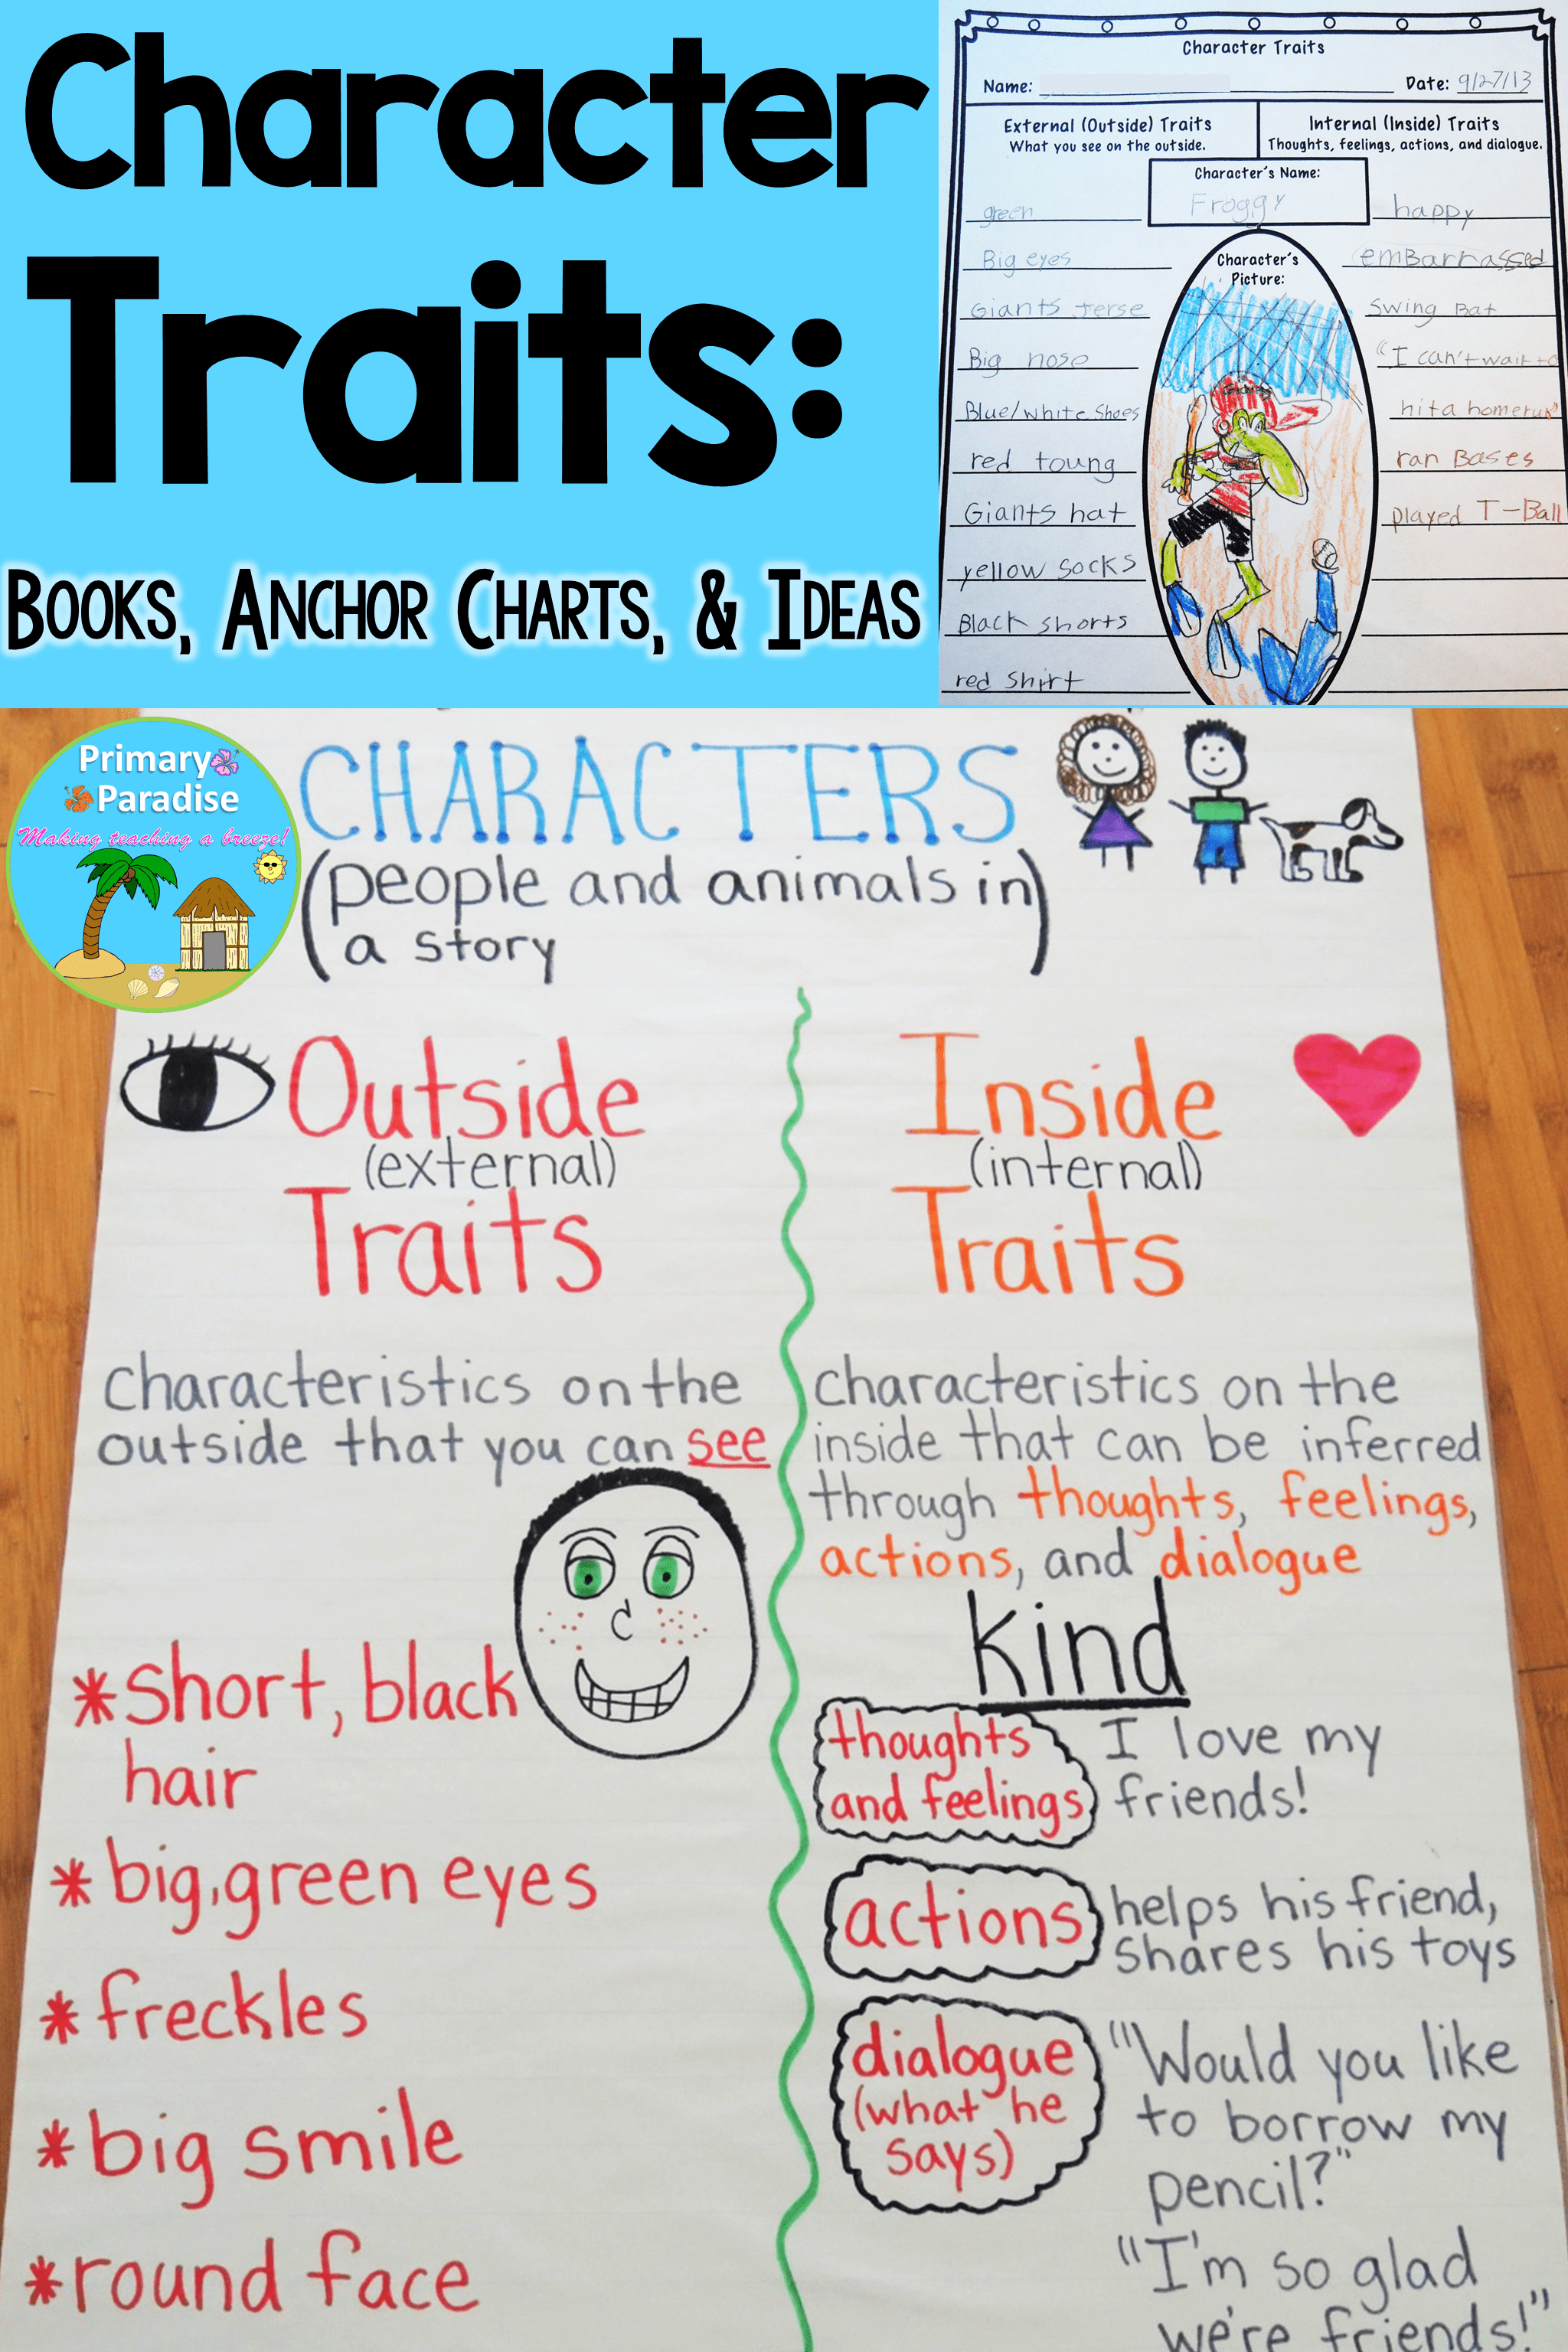 Character
Traits:
BOOKS, ANCHOR CHARTS, & IDEAS
Character Traits
Name:
Date: 9/27/13
External (Outside) Traits
What you see on the outside.
Internal (Inside) Traits
Thoughts, feelings, actions, and dialogue.
Character's Name:
Froggy
green
Big eyes
Giants Jerse
Big nose
Blue/white Shoes
red toung
Giants hat
yellow socks
Black shorts
red shirt
Character's
Picture:
happy
emBarrassed
Swing Bat
"I can't wait to
hit a homerun"
ran Bases
played T-Ball
Primary
Paradise
Making teaching a breeze!
CHARACTERS
(people and animals in
a story)
Outside
(external)
Traits
Characteristics on the
outside that you can see
*short, black
hair
*big, green eyes
*freckles
*big smile
*round face
Inside
(internal)
Traits
Characteristics on the
inside that can be inferred
through thoughts, feelings,
actions, and dialogue
kind
thoughts
and feelings
I love my
friends!
actions
helps his friend,
shares his toys
dialogue
(what he
says)
"Would you like
to borrow my
pencil?"
"I'm so glad
we're friends!"